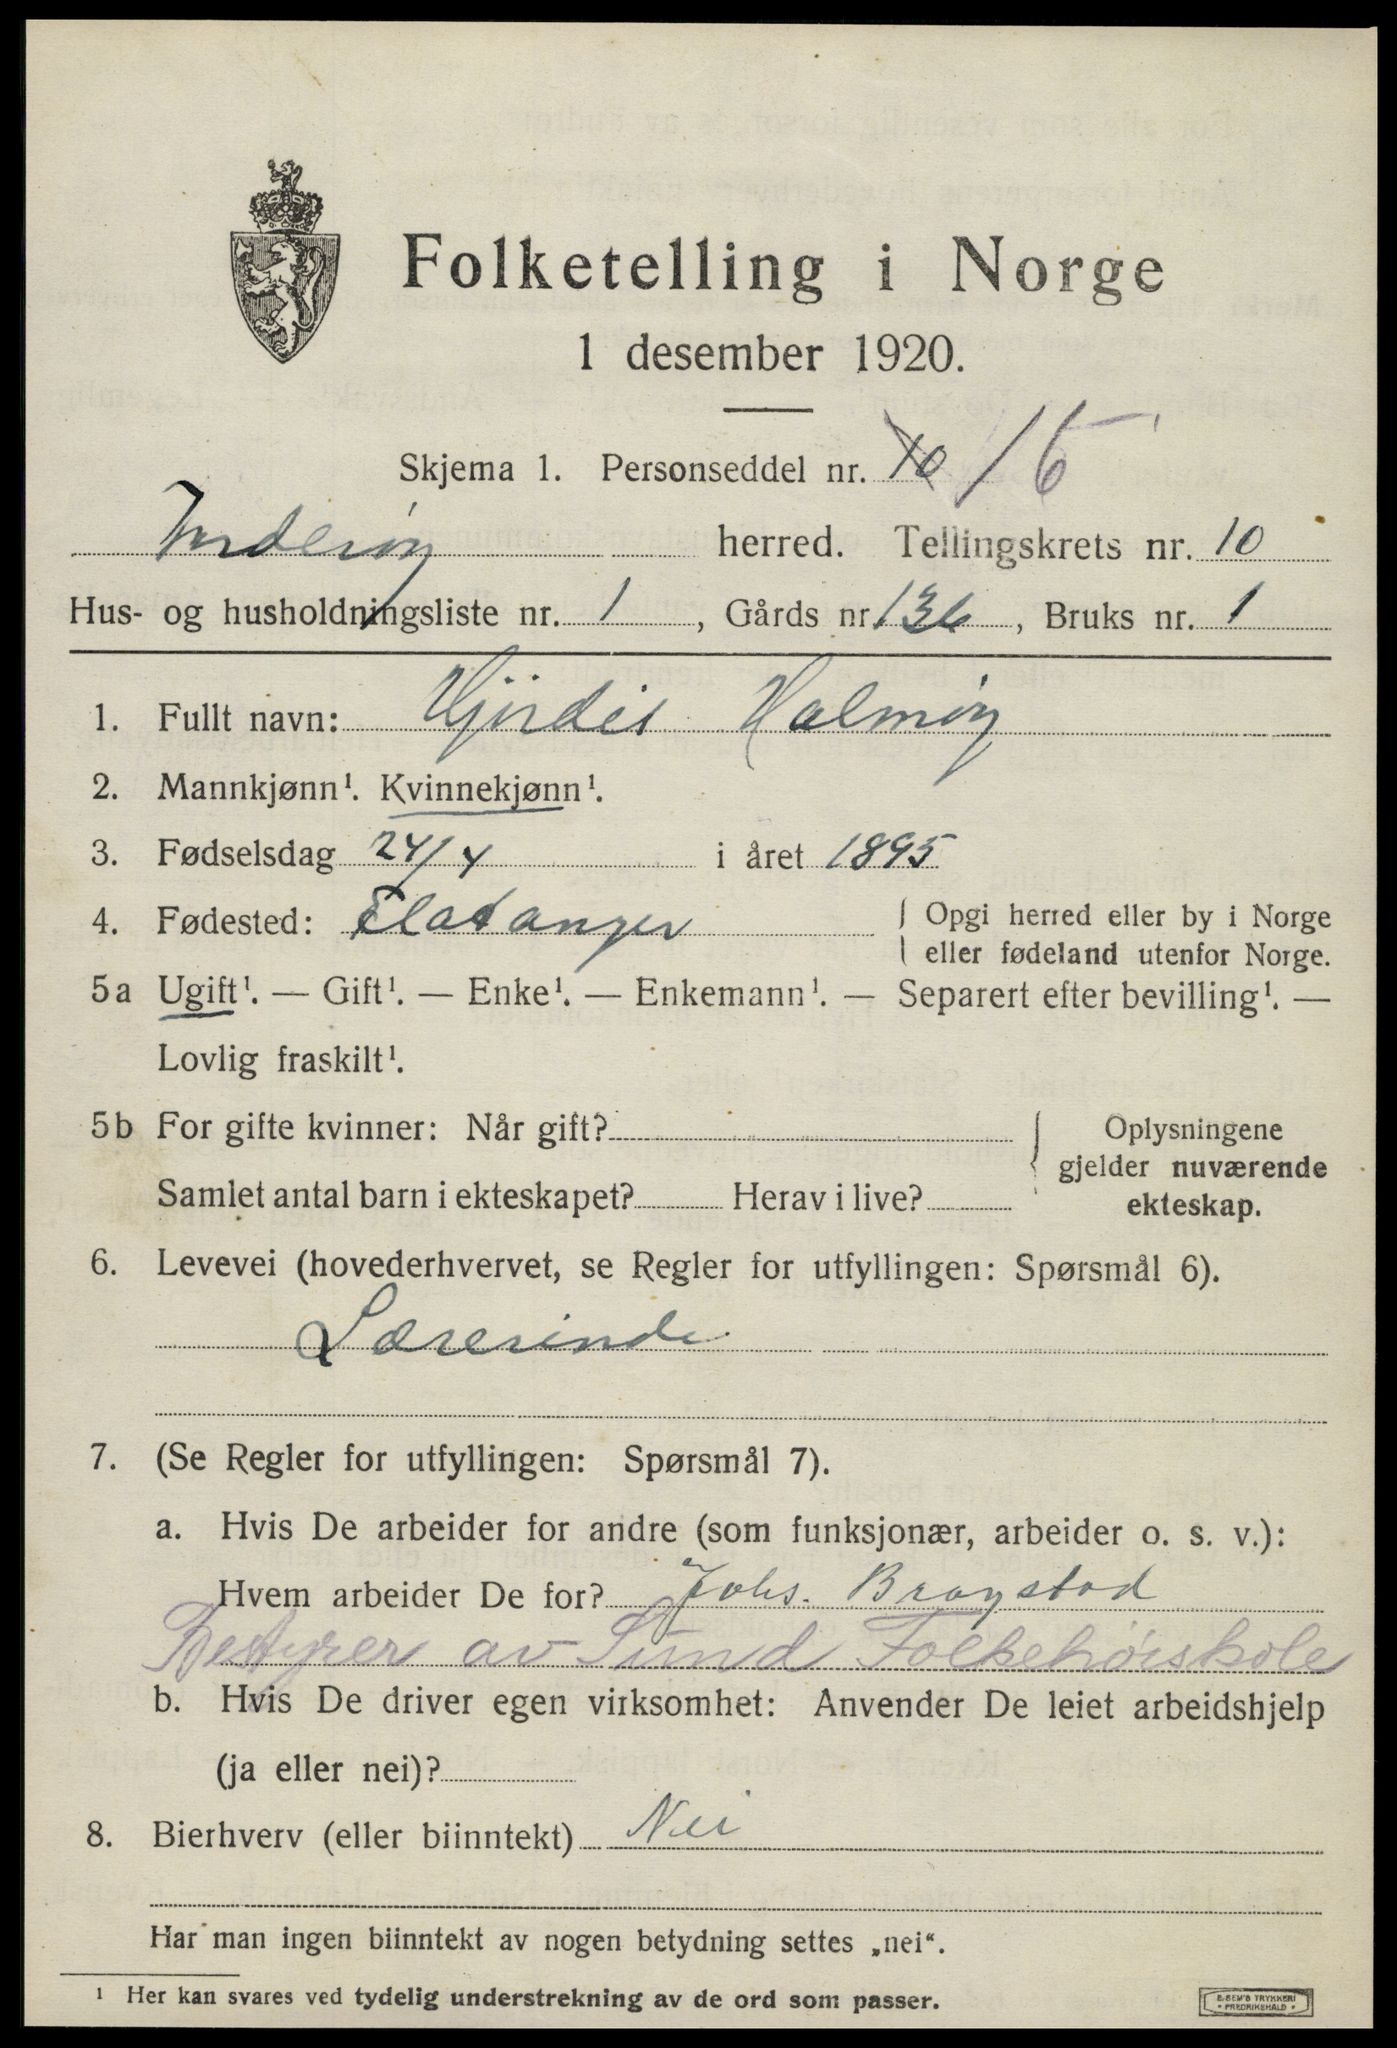 Folketelling i Norge
1 desember 1920.
Skjema 1. Personseddel nr. 10 15
Inderøy herred. Tellingskrets nr. 10
Hus- og husholdningsliste nr. 1, Gårds nr 136, Bruks nr. 1
1. Fullt navn: Hjördis Halmöy
2. Mannkjønn¹. Kvinnekjønn¹.
3. Fødselsdag 24/4 i året 1895
4. Fødested: Flatanger { Opgi herred eller by i Norge
eller fødeland utenfor Norge.
5a Ugift¹. — Gift¹. — Enke¹. — Enkemann¹. — Separert efter bevilling¹. —
Lovlig fraskilt¹.
5b For gifte kvinner: Når gift? { Oplysningene
gjelder nuværende
Samlet antal barn i ekteskapet? Herav i live? ekteskap.
6. Levevei (hovederhvervet, se Regler for utfyllingen: Spørsmål 6).
Lærerinde
7. (Se Regler for utfyllingen: Spørsmål 7).
a. Hvis De arbeider for andre (som funksjonær, arbeider o. s. v.):
Hvem arbeider De for? Johs. Braystad
Bestyrer av Sund Folkehøiskole
b. Hvis De driver egen virksomhet: Anvender De leiet arbeidshjelp
(ja eller nei)?
8. Bierhverv (eller biinntekt) Nei
Har man ingen biinntekt av nogen betydning settes „nei“.
¹ Her kan svares ved tydelig understrekning av de ord som passer.
E. SEM'S TRYKKERI
• FREDRIKSHALD •